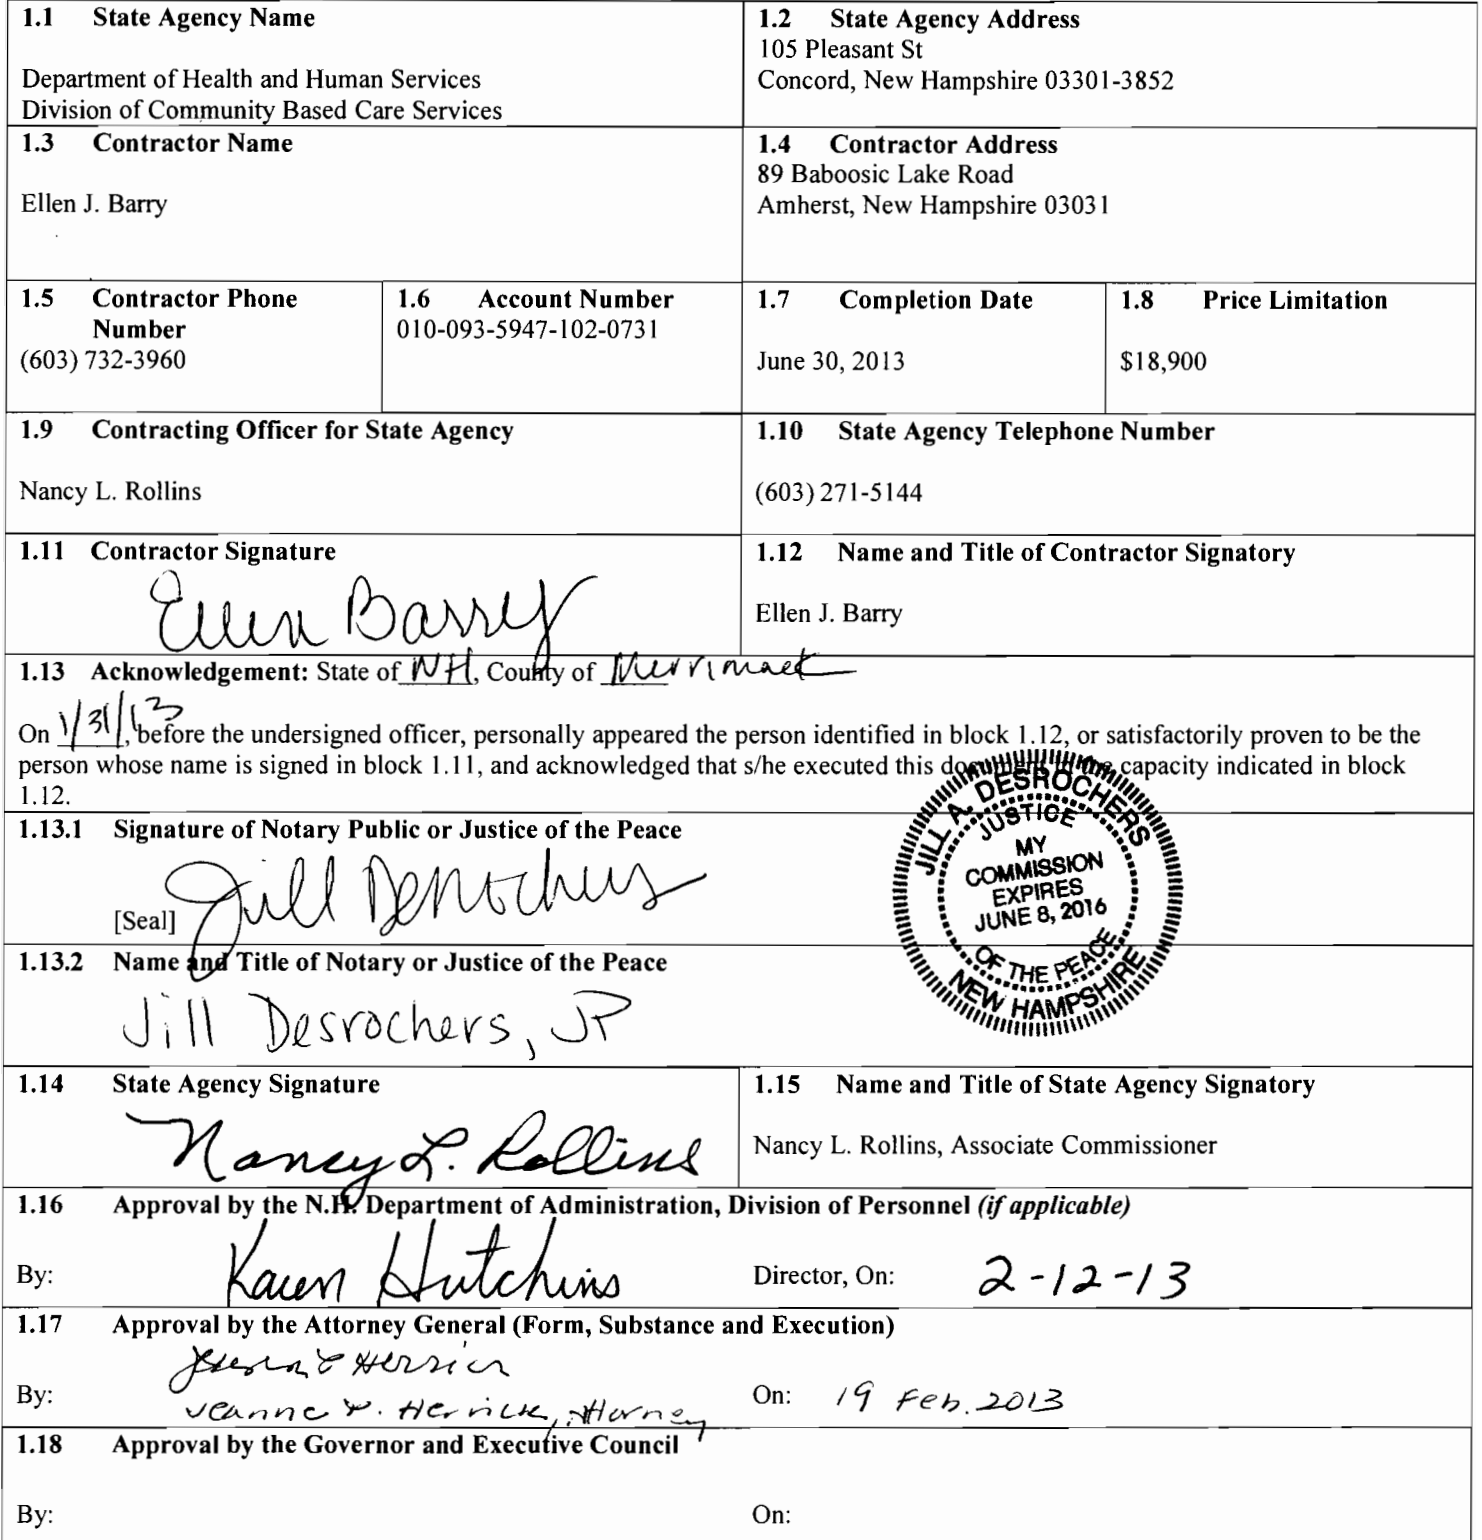 1.1 State Agency Name
Department of Health and Human Services
Division of Community Based Care Services
1.2 State Agency Address
105 Pleasant St
Concord, New Hampshire 03301-3852
1.3 Contractor Name
Ellen J. Barry
1.4 Contractor Address
89 Baboosic Lake Road
Amherst, New Hampshire 03031
1.5 Contractor Phone
Number
(603) 732-3960
1.6 Account Number
010-093-5947-102-0731
1.7 Completion Date
June 30, 2013
1.8 Price Limitation
$18,900
1.9 Contracting Officer for State Agency
Nancy L. Rollins
1.10 State Agency Telephone Number
(603) 271-5144
1.11 Contractor Signature
Ellen Barry
1.12 Name and Title of Contractor Signatory
Ellen J. Barry
1.13 Acknowledgement: State of NH, County of Merrimack
On 1/31/13, before the undersigned officer, personally appeared the person identified in block 1.12, or satisfactorily proven to be the
person whose name is signed in block 1.11, and acknowledged that s/he executed this document in the capacity indicated in block
1.12.
1.13.1 Signature of Notary Public or Justice of the Peace
Jill Desrochers
[Seal]
JILL A. DESROCHERS
JUSTICE
MY
COMMISSION
EXPIRES
JUNE 8, 2016
OF THE PEACE
NEW HAMPSHIRE
1.13.2 Name and Title of Notary or Justice of the Peace
Jill Desrochers, JP
1.14 State Agency Signature
Nancy L. Rollins
1.15 Name and Title of State Agency Signatory
Nancy L. Rollins, Associate Commissioner
1.16 Approval by the N.H. Department of Administration, Division of Personnel (if applicable)
By: Karen Hutchins Director, On: 2-12-13
1.17 Approval by the Attorney General (Form, Substance and Execution)
Herrick
By: Jeanne P. Herrick, Attorney On: 19 Feb. 2013
1.18 Approval by the Governor and Executive Council
By: On: